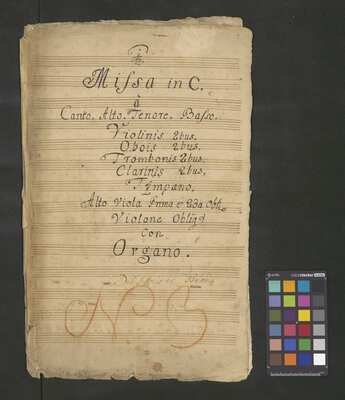 Missa in C.
à
Canto. Alto. Tenore. Basso.
Violinis 2bus.
Obois 2bus.
Trombonis 2bus.
Clarinis 2bus.
Tympano.
Alto Viola Prima è 2da Obl.
Violone Oblig.
Con
Organo.
No 5